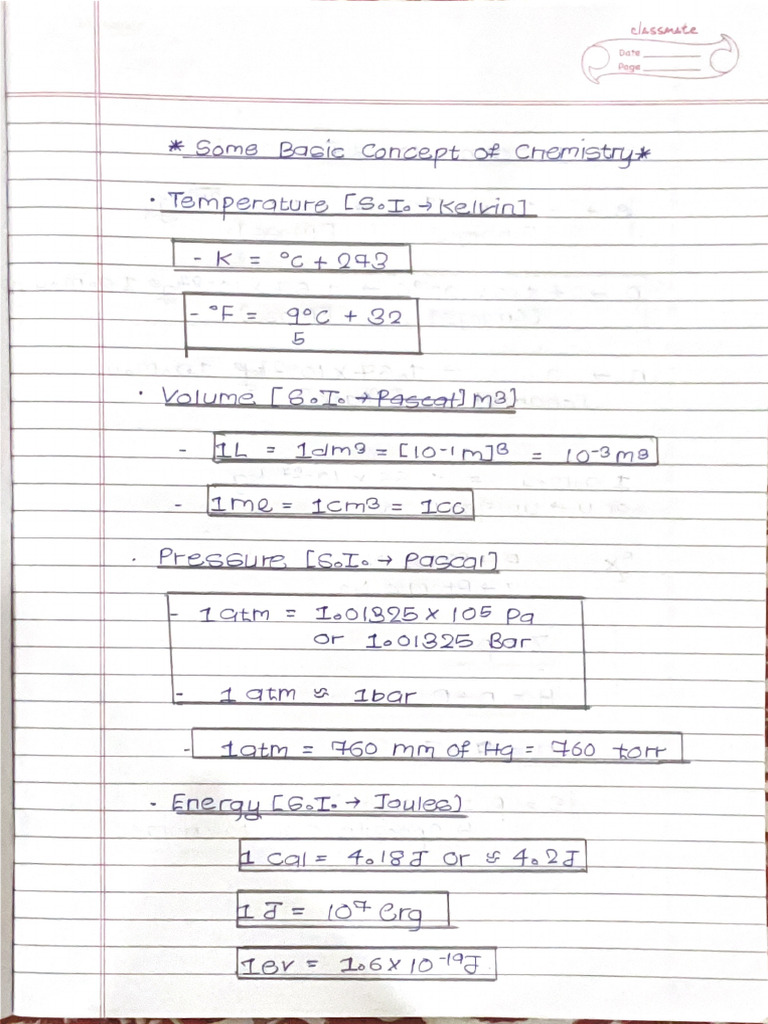 classmate
Date
Page
* Some Basic Concept of Chemistry *
· Temperature [S.I. → Kelvin]
- K = °C + 273
- °F = 9°C + 32
5
· Volume [S.I. → Pascal] m3]
- 1L = 1dm3 = [10-1m]3 = 10-3m3
- 1ml = 1cm3 = 1cc
· Pressure [S.I. → Pascal]
- 1 atm = 1.01325 × 105 Pa
or 1.01325 Bar
- 1 atm ≈ 1bar
- 1atm = 760 mm of Hg = 760 torr
· Energy [S.I. → Joules]
1 cal = 4.18J or ≈ 4.2J
1 J = 10⁷ erg
1ev = 1.6 × 10⁻¹⁹J